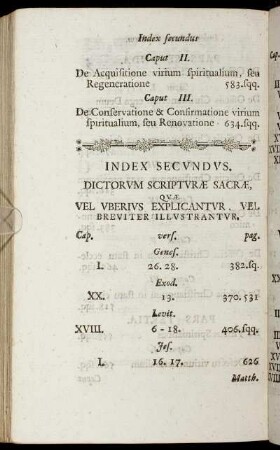 Index secundus
Caput II.
De Acquisitione virium spiritualium, seu
Regeneratione 583.sqq.
Caput III.
De Conservatione & Confirmatione virium
spiritualium, seu Renovatione 634.sqq.
INDEX SECVNDVS.
DICTORVM SCRIPTVRÆ SACRÆ,
QVÆ
VEL VBERIVS EXPLICANTVR, VEL
BREVITER ILLUSTRANTVR.
Cap. vers. pag.
Genes.
I. 26. 28. 382.sq.
Exod.
XX. 13. 370. 531
Levit.
XVIII. 6-18. 406.sqq.
Jos.
I. 16. 17. 626
Matth.